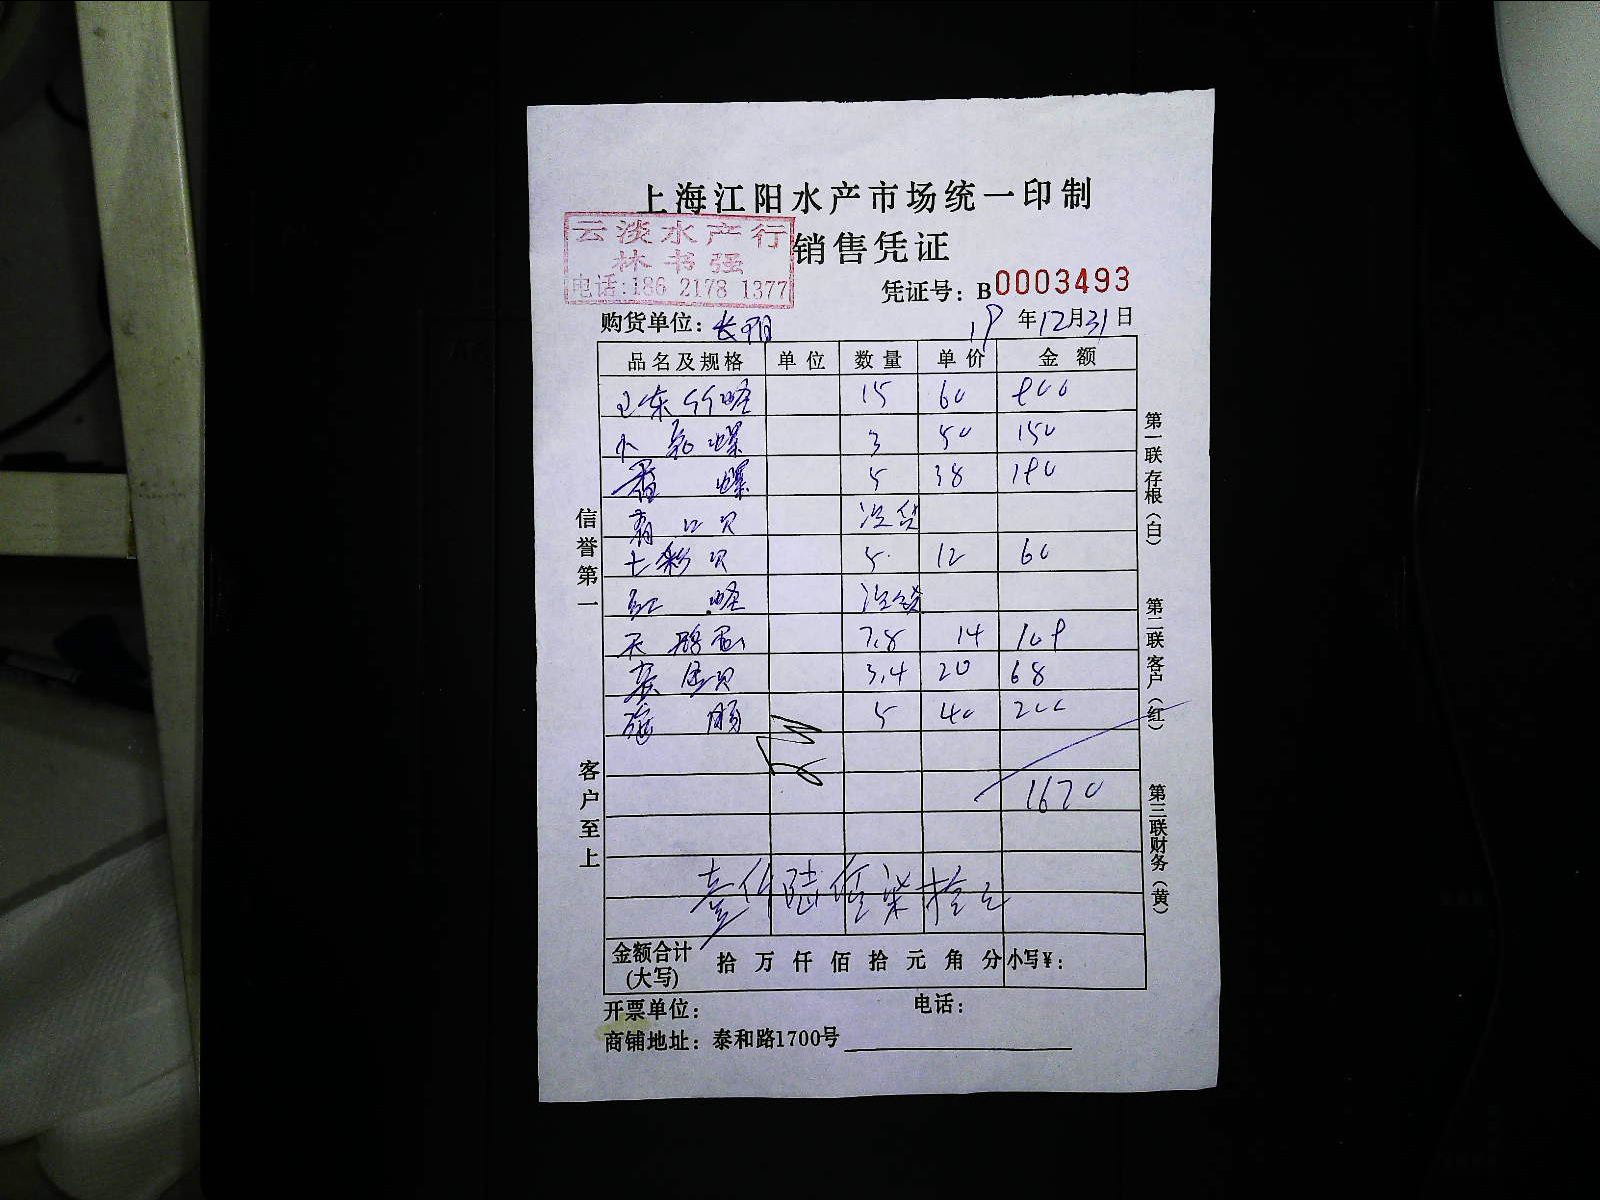 上海江阳水产市场统一印制
销售凭证
云淡水产行
林书强
电话:186 2178 1377
凭证号：B0003493
购货单位：长阳 19年12月31日
品名及规格 单位 数量 单价 金额
15 60 900
小 螺 3 50 150
香 螺 5 38 190
青口贝 没货
七彩贝 5 12 60
红 没货
天鹅蛋 7.8 14 109
贝 3.4 20 68
5 40 200
1670
壹仟陆佰柒拾元
金额合计(大写) 拾 万 仟 佰 拾 元 角 分 小写¥：
开票单位： 电话：
商铺地址：泰和路1700号
信誉第一
客户至上
第一联存根（白）
第二联客户（红）
第三联财务（黄）